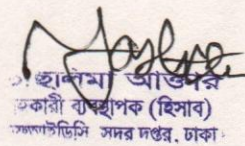 হালিমা আক্তার
সহকারী ব্যবস্থাপক (হিসাব)
সদর দপ্তর, ঢাকা